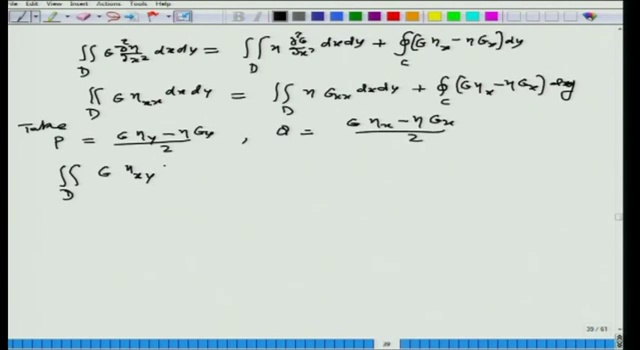 File View Insert Actions Tools Help
∬_D G ∂²η/∂x² dxdy = ∬_D η ∂²G/∂x² dxdy + ∮_C (G η_x − η G_x) dy
∬_D G η_xx dxdy = ∬_D η G_xx dxdy + ∮_C (G η_x − η G_x) dy
Take P = (G η_y − η G_y)/2 , Q = (G η_x − η G_x)/2
∬_D G η_xy